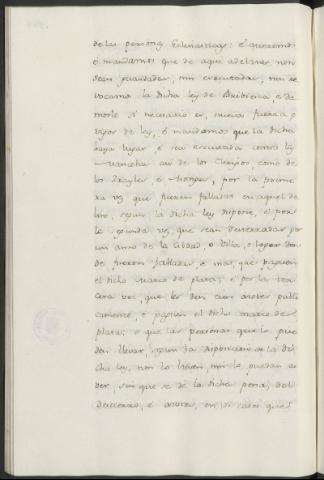 de las personas Eclesiasticas: é queremos
é mandamos que de aqui adelante non
sean guardadas, nin executadas, nin re
vocamos la dicha ley de Bribiesca, é da
mosle si necesario es, nueva fuerza é
vigor de ley, é mandamos que la dicha
haya lugar, é sea executada contra las
Mancebas asi de los Clerigos, como de
los Frayles, é Monges, por la prime
ra vez que fueren falladas en aquel de
lito, segun la dicha ley dispone, é por
la segunda vez, que sean desterradas por
un año de la Cibdad, o Villa, o logar don
de fueren falladas é mas, que paguen
el dicho marco de plata; é por la ter
cera vez, que les den cien azotes publi
camente, é paguen el dicho marco de
plata; é que las personas que lo pue
den llevar, segun la disposicion de la di
cha ley, non lo lleven, nin lo puedan
der, sin que se de la dicha pena, del
destierro, é azotes, en los casos que